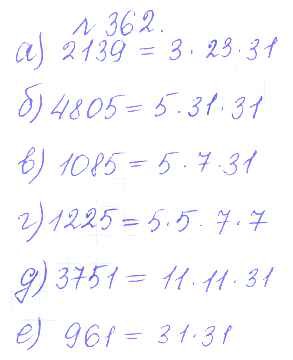 № 362.
а) 2139 = 3 · 23 · 31
б) 4805 = 5 · 31 · 31
в) 1085 = 5 · 7 · 31
г) 1225 = 5 · 5 · 7 · 7
д) 3751 = 11 · 11 · 31
е) 961 = 31 · 31